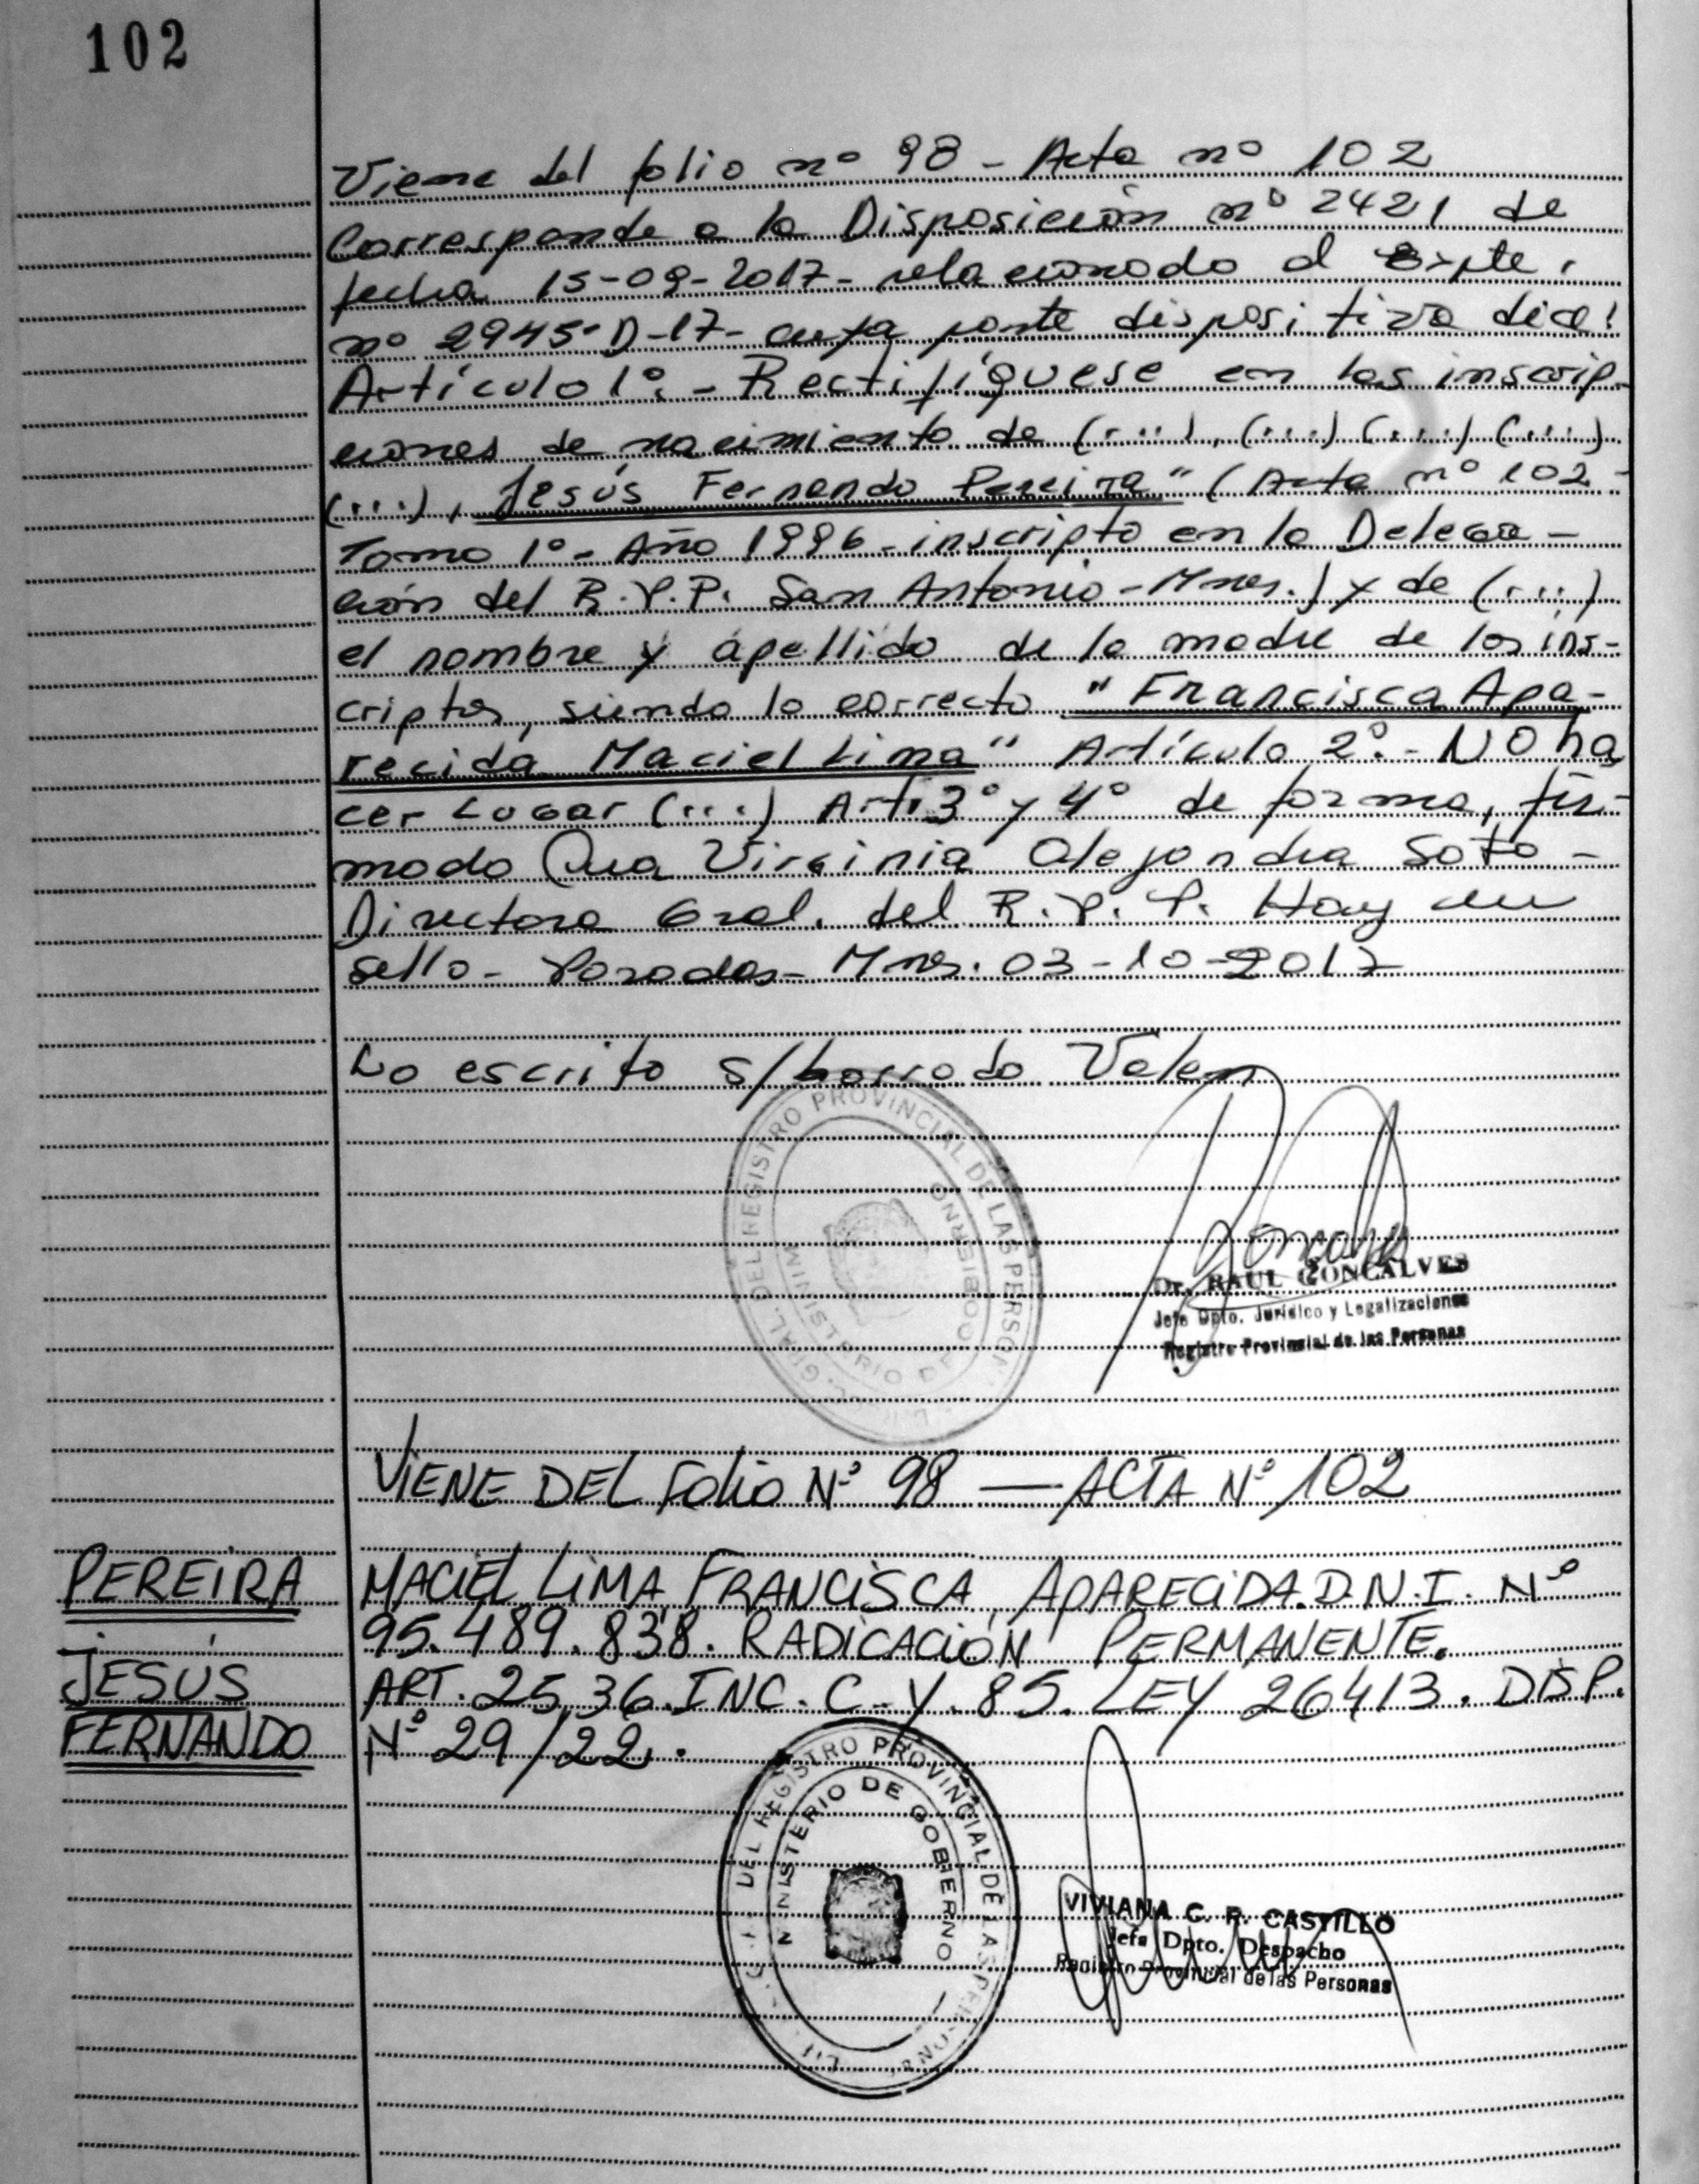 102
Viene del folio nº 98 - Acta nº 102
Corresponde a la Disposición nº 2421 de
fecha 15-09-2017 - relacionado al Expte.
nº 2945-D-17- cuya parte dispositiva dice:
Artículo 1º.- Rectifíquese en las inscrip-
ciones de nacimiento de (...), (...) (...) (...)
(...), Jesús Fernando Pereira" (Acta nº 102-
Tomo 1º- Año 1996 - inscripto en la Delega-
ción del R.P.P. San Antonio - Mnes.) y de (...)
el nombre y apellido de la madre de los ins-
criptos, siendo lo correcto "Francisca Apa-
recida Maciel Lima" Artículo 2º.- NO ha
cer Lugar (...) Art. 3º y 4º de forma, fir-
mado Dra Virginia Alejandra Soto -
Directora Gral. del R.P.P. Hay un
sello - Posadas - Mnes. 03-10-2017
Lo escrito s/borrado Vale
DEL REGISTRO PROVINCIAL DE LAS PERSON
MINISTERIO DE GOBIERNO
Dr. RAUL GONCALVES
Jefe Dpto. Jurídico y Legalizaciones
Registro Provincial de las Personas
VIENE DEL FOLIO Nº 98 — ACTA Nº 102
PEREIRA
JESÚS
FERNANDO
MACIEL LIMA FRANCISCA, APARECIDA. D.N.I. Nº
95.489.838. RADICACIÓN PERMANENTE.
ART. 25,36. INC. C - Y. 85. LEY 26413. DISP.
Nº 29/22.
DEL REGISTRO PROVINCIAL DE LAS PERSONAS
MINISTERIO DE GOBIERNO
VIVIANA C. R. CASTILLO
Jefa Dpto. Despacho
Registro Provincial de las Personas